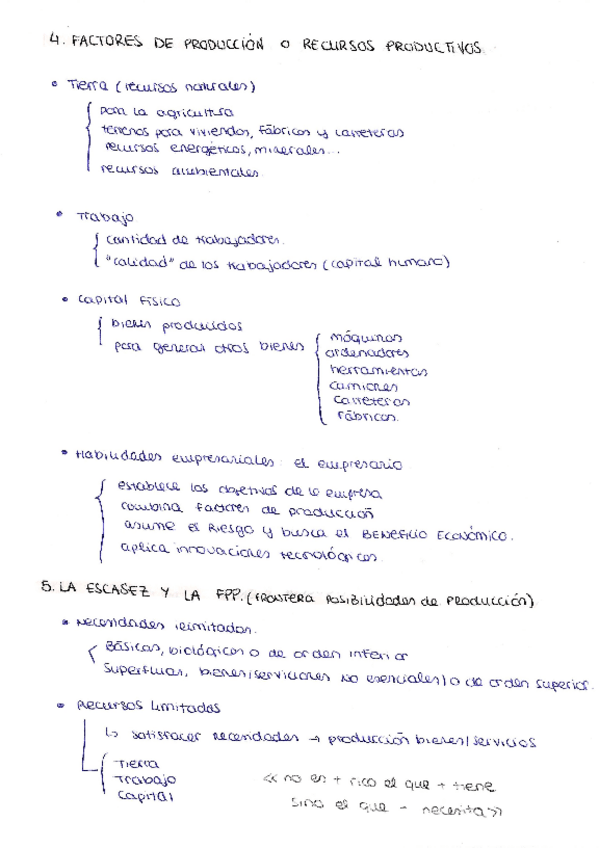 4. FACTORES DE PRODUCCIÓN O RECURSOS PRODUCTIVOS.
• Tierra (recursos naturales)
para la agricultura
terrenos para viviendas, fábricas y carreteras
recursos energéticos, minerales...
recursos ambientales.
• Trabajo
cantidad de trabajadores.
"calidad" de los trabajadores (capital humano)
• Capital físico
bienes producidos
para generar otros bienes
máquinas
ordenadores
herramientas
camiones
carreteras
fábricas.
• Habilidades empresariales: el empresario
establece los objetivos de la empresa
combina factores de producción
asume el RIESGO y busca el BENEFICIO ECONÓMICO.
aplica innovaciones tecnológicas.
5. LA ESCASEZ Y LA FPP. (FRONTERA Posibilidades de Producción)
• Necesidades ilimitadas.
Básicas, biológicas o de orden inferior
Superfluas, bienes/servicios NO esenciales/o de orden superior.
• Recursos limitados
↳ satisfacer necesidades → producción bienes/servicios
Tierra
Trabajo
Capital
<< no es + rico el que + tiene
sino el que - necesita >>